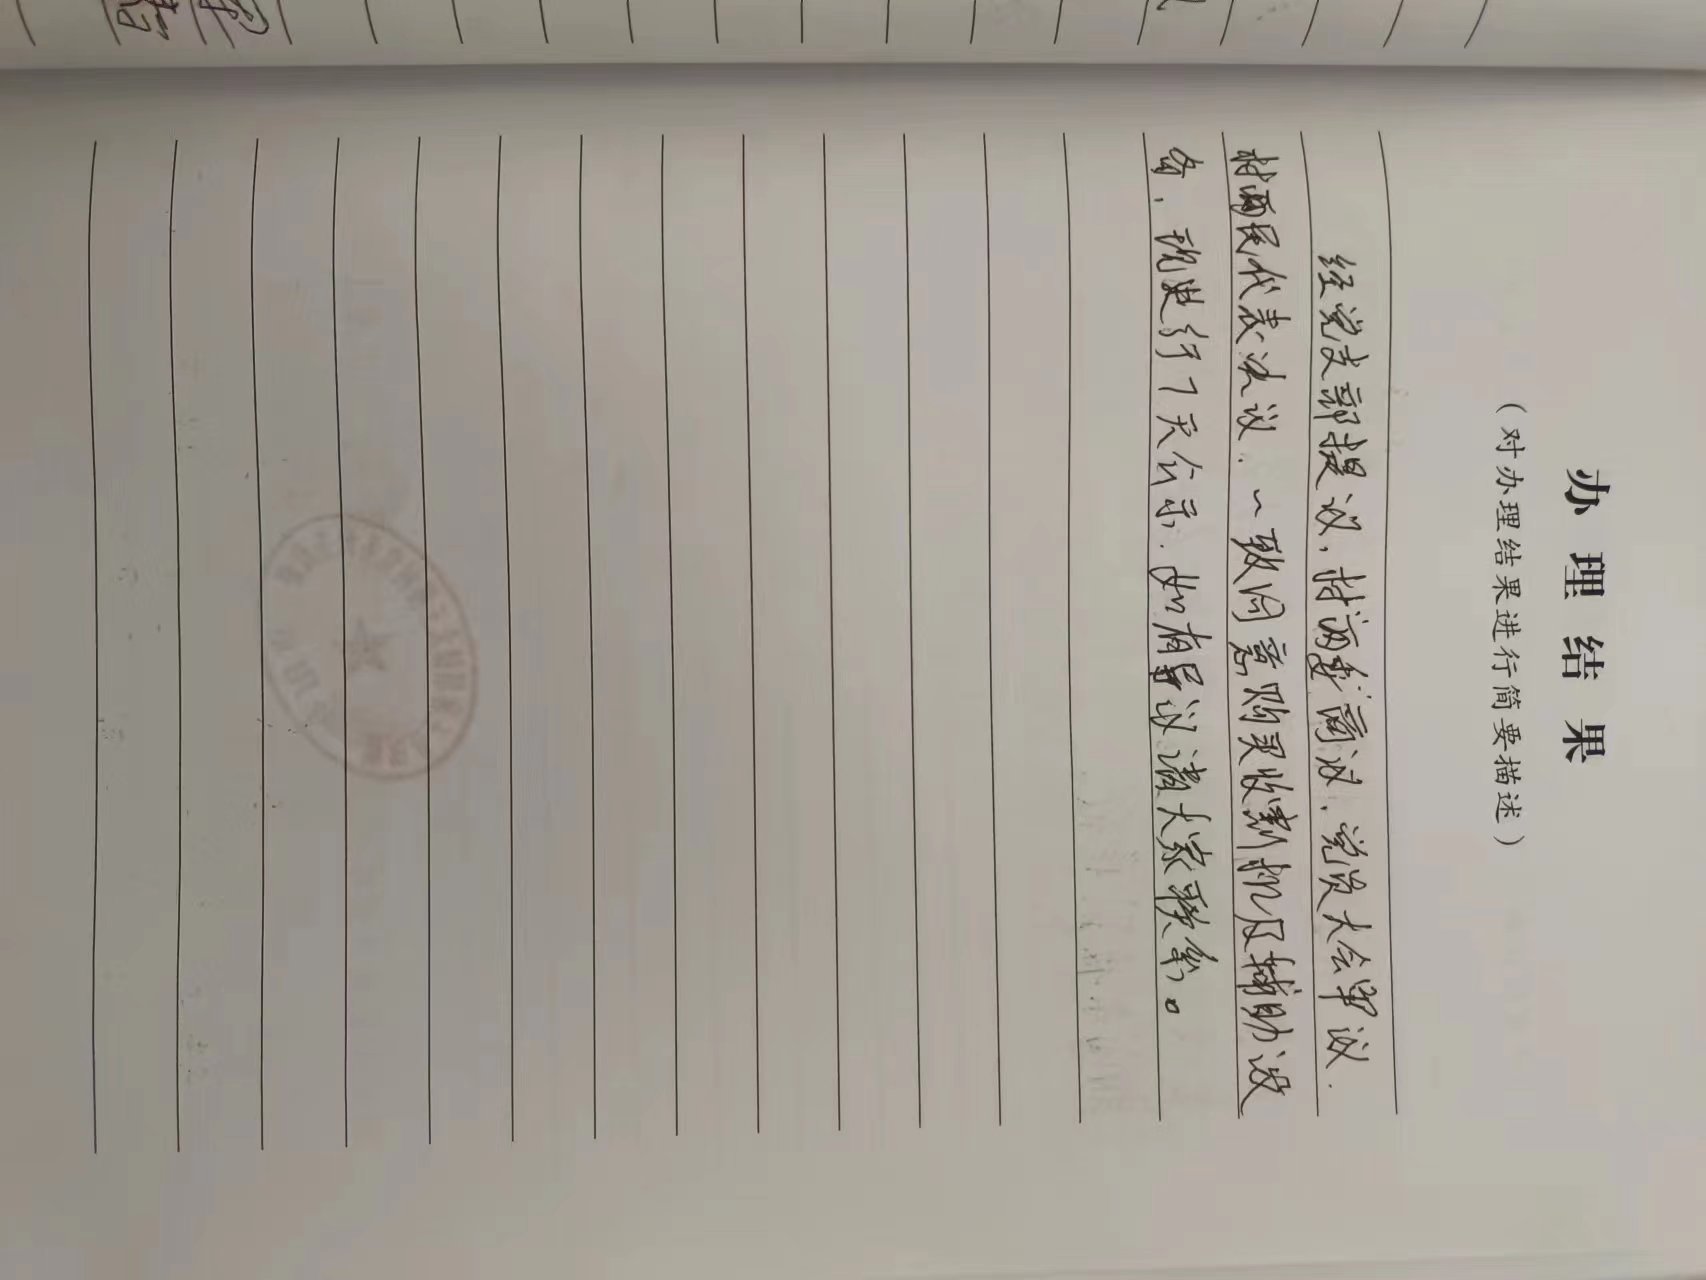 办理结果
（对办理结果进行简要描述）
经党支部提议，村“两委”商议，党员大会审议，
村两民代表决议，一致同意购买收割机及辅助设
备，现进行7天公示，如有异议请大家联系。